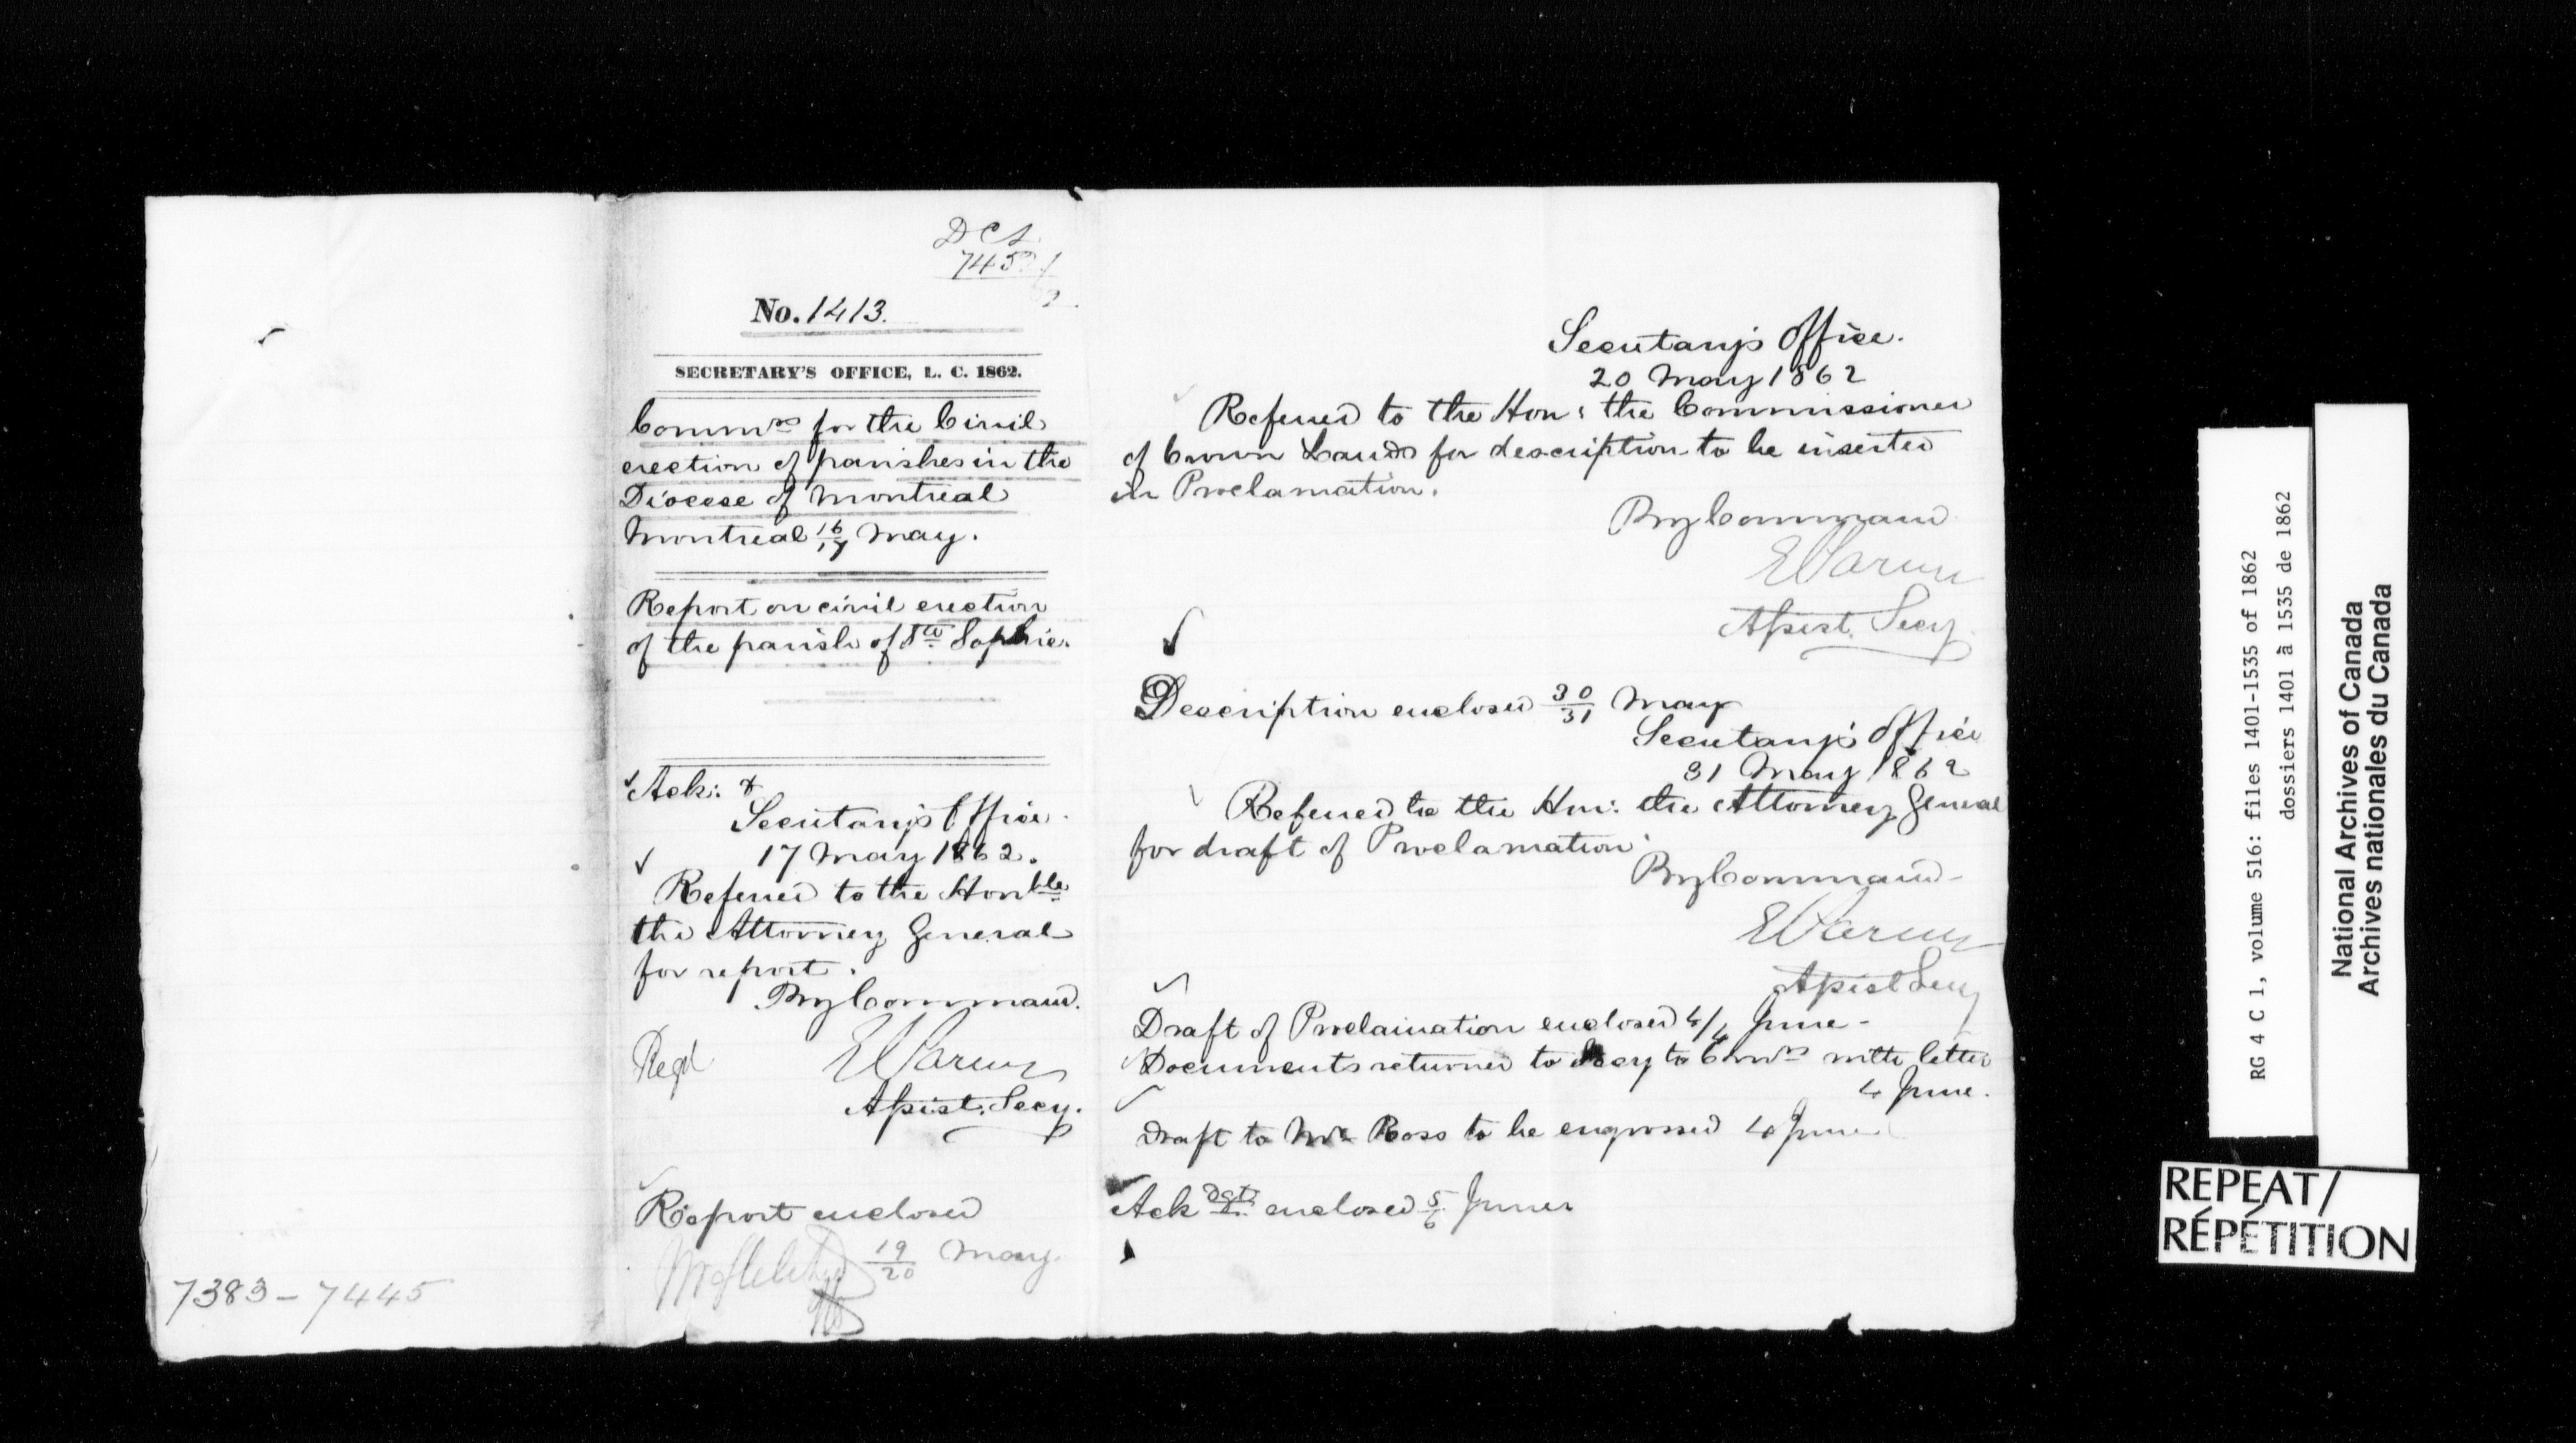 7383 – 7445
DCL
745
No. 1413.
SECRETARY'S OFFICE, L. C. 1862.
Commrs for the Civil
erection of parishes in the
Diocese of Montreal
Montreal 16/17 May.
Report on civil erection
of the parish of Ste Sophie.
Ack: &
Secretary's Office.
17 May 1862.
Referred to the Honble
the Attorney General
for report.
By Command.
Regd
E Parent
Assist. Secy.
Report enclosed
19/20 May.
Secretary's Office.
20 May 1862
Referred to the Hon: the Commissioner
of Crown Lands for description to be inserted
in Proclamation.
By Command
E Parent
Assist. Secy
Description enclosed 30/31 May
Secretary's Office
31 May 1862
Referred to the Hon: the Attorney General
for draft of Proclamation
By Command
E Parent
Assist Secy
Draft of Proclamation enclosed 4/4 June -
Documents returned to Secy to Commrs with letter
4 June.
Draft to Mr Ross to be engrossed 4 June
Ack enclosed 5/6 June
RG 4 C 1, volume 516: files 1401-1535 of 1862
dossiers 1401 à 1535 de 1862
National Archives of Canada
Archives nationales du Canada
REPEAT/
RÉPÉTITION